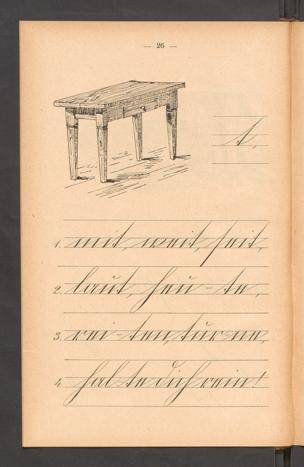 — 26 —
t,
1. mit, weit, seit,
2. laut, heu-te,
3. rei-ten, tür-ne,
4. hal-te dich rein!